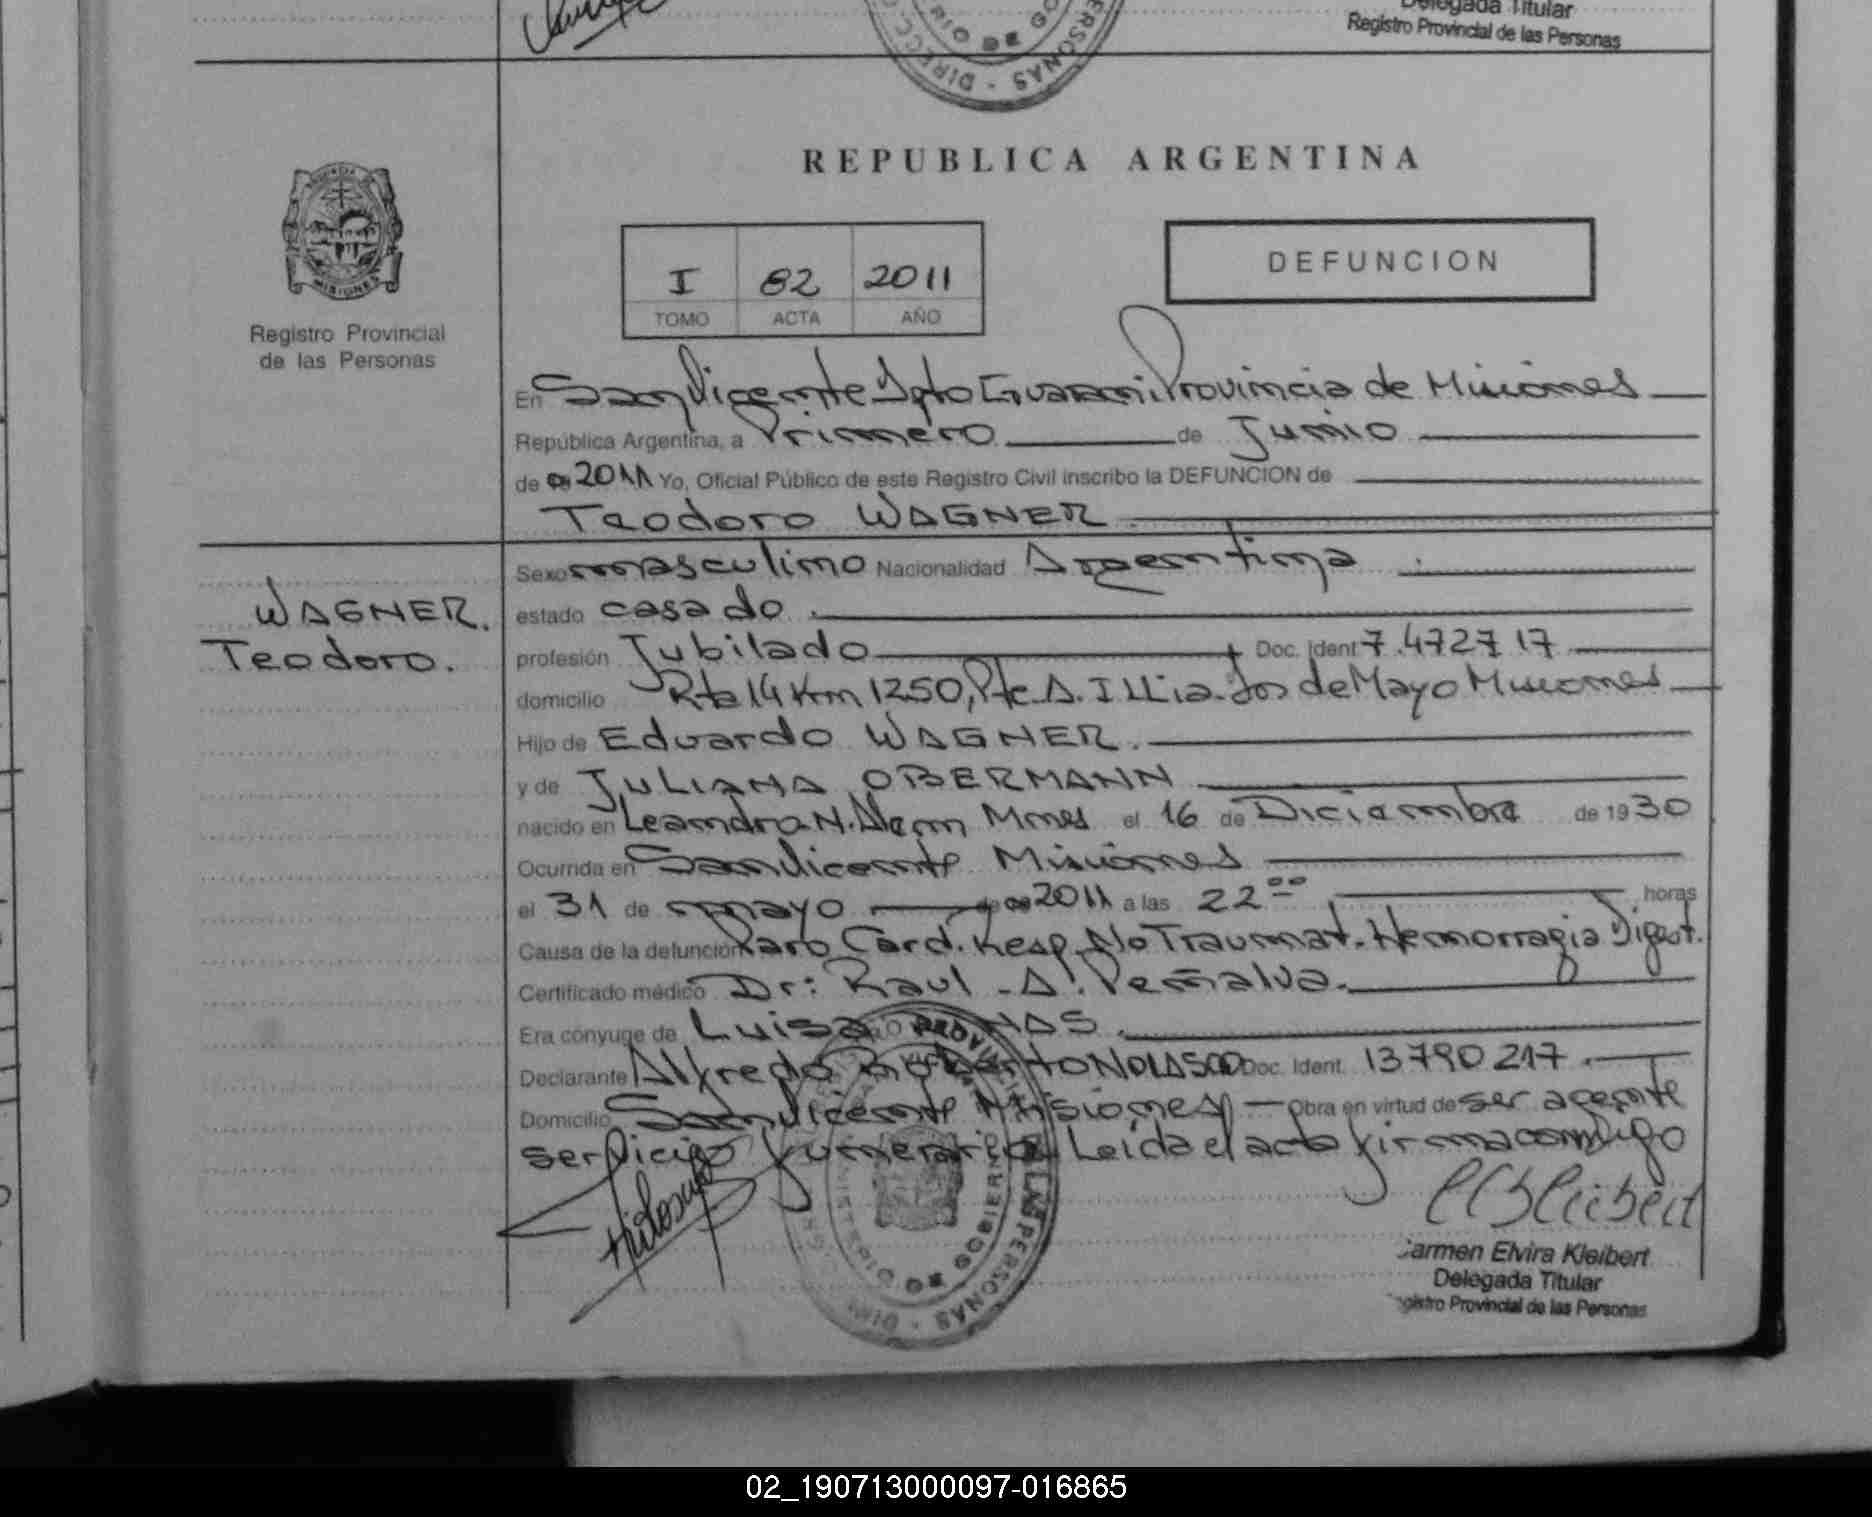 Delegada Titular
Registro Provincial de las Personas
DIRECC
PERSONAS
REPUBLICA ARGENTINA
I 82 2011
TOMO ACTA AÑO
DEFUNCION
MISIONES
Registro Provincial
de las Personas
En San Vicente Dpto Guarani Provincia de Misiones
República Argentina, a Primero de Junio
de 2011 Yo, Oficial Público de este Registro Civil inscribo la DEFUNCION de
Teodoro WAGNER
WAGNER.
Teodoro.
Sexo masculino Nacionalidad Argentina
estado casado
profesión Jubilado Doc. Ident 7.472717
domicilio Rta 14 Km 1250, Pte. A. Illia. Dos de Mayo Misiones
Hijo de Eduardo WAGNER.
y de JULIANA OBERMANN
nacido en Leandro N. Alem Mnes el 16 de Diciembre de 1930
Ocurrida en San Vicente Misiones
el 31 de mayo de 2011 a las 22 00 horas
Causa de la defunción Paro Card. Resp. No Traumat. Hemorragia Digest.
Certificado médico Dr: Raul A. Peñalva.
Era cónyuge de Luisa
Declarante Alfredo Roberto NOLASCO Doc. Ident. 13790217.
Domicilio San Vicente Misiones Obra en virtud de ser agente
servicio funerario. Leida el acta firma conmigo
PROVINCIAL
DE LAS PERSONAS
Carmen Elvira Kleibert
Delegada Titular
Registro Provincial de las Personas
02_190713000097-016865